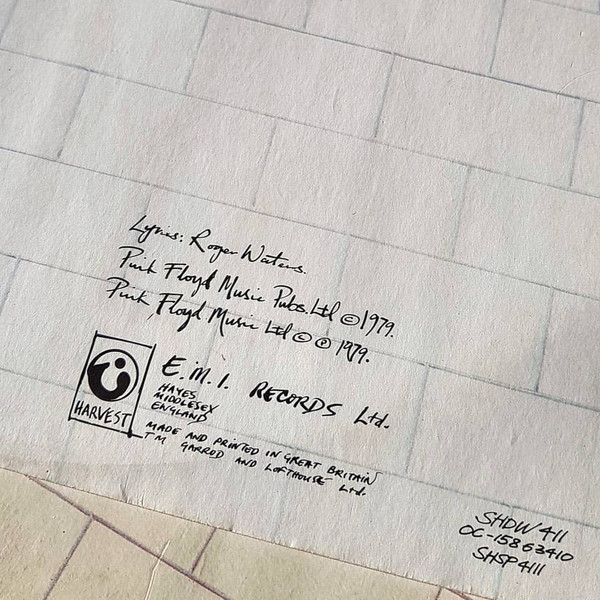 Lyrics: Roger Waters.
Pink Floyd Music Pubs. Ltd © 1979.
Pink Floyd Music Ltd © ℗ 1979.
HARVEST
E.M.I. RECORDS Ltd.
HAYES
MIDDLESEX
ENGLAND
MADE AND PRINTED IN GREAT BRITAIN
TM GARROD AND LOFTHOUSE Ltd.
SHDW 411
OC-15863410
SHSP4111